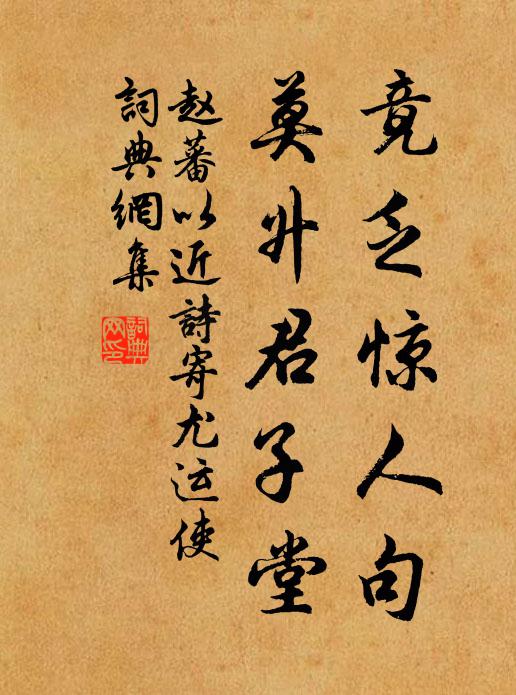 竟乏惊人句
莫升君子堂
赵蕃以近詩寄尤运使
詞典網集
詞典网印